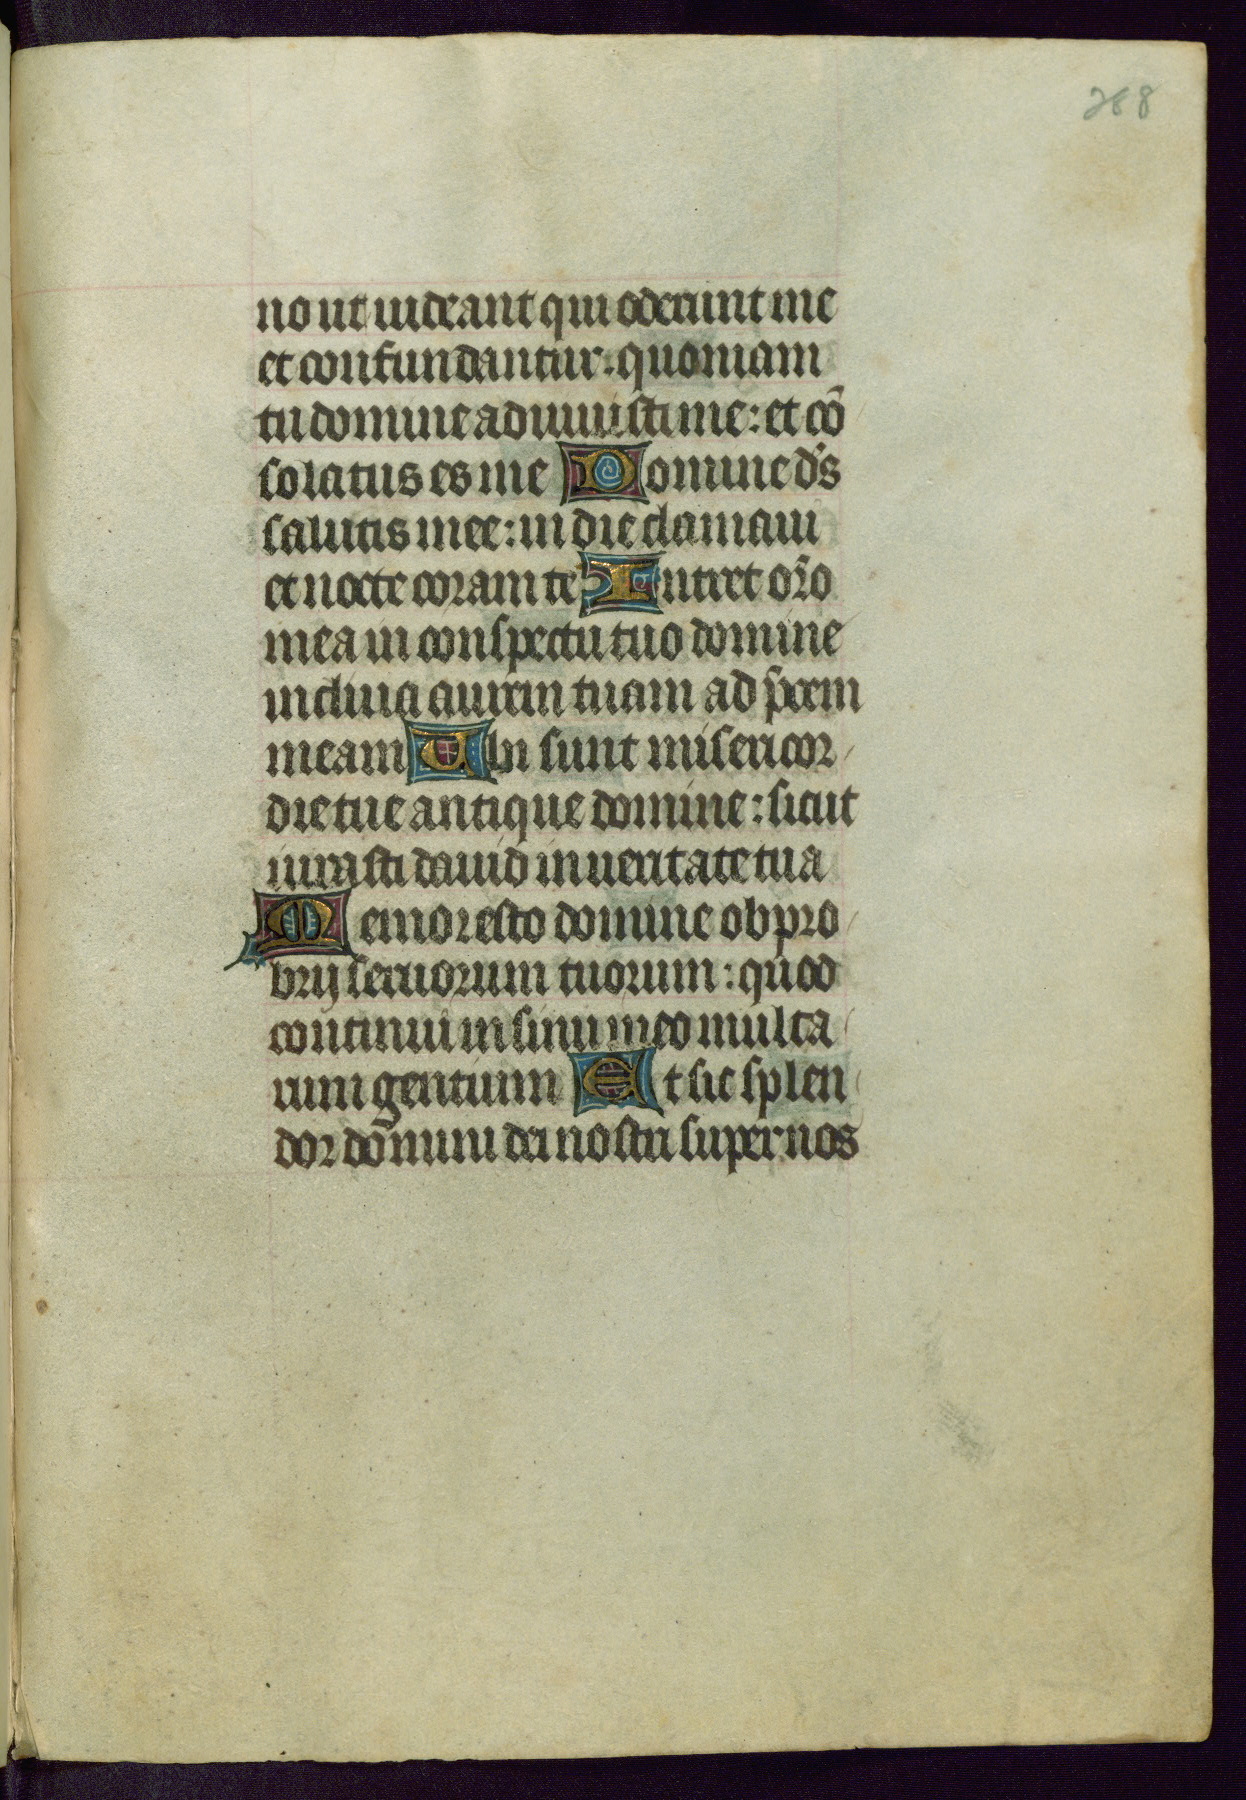 288
no ut uideant qui oderunt me
et confundantur. quoniam
tu domine adiuuisti me: et cō
solatus es me Domine d̄s
salutis mee: in die clamaui
et nocte coram te Intret or̄o
mea in conspectu tuo domine
inclina aurem tuam ad precem
meam Ubi sunt misericor
die tue antique domine: sicut
iurasti dauid in ueritate tua
Memor esto domine obpro
brij seruorum tuorum: quod
continui in sinu meo multa
rum gentium Et sit splen
dor dōmini dei nostri super nos